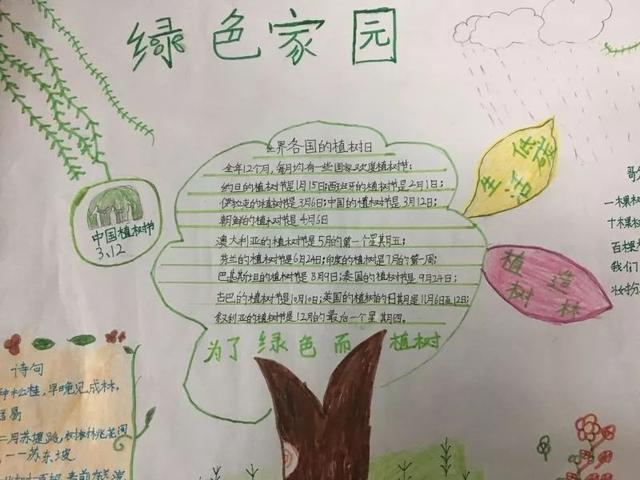 绿色家园
世界各国的植树日
全年12个月,每月均有一些国家欢度植树节:
约旦的植树节是1月15日;西班牙的植树节是2月1日;
伊拉克的植树节是3月6日;中国的植树节是3月12日;
朝鲜的植树节是4月6日
澳大利亚的植树节是5月的第一个星期五;
芬兰的植树节是6月24日;印度的植树节是7月的第一周;
巴基斯坦的植树节是8月9日;泰国的植树节是9月24日;
古巴的植树节是10月10日;英国的植树节的日期是11月6日至12日;
叙利亚的植树节是12月的最后一个星期四。
为了绿色而植树
中国植树节
3.12
低碳
生活
植树
造林
一棵树
十棵树
百棵
我们
妆扮
诗句
种松桂,早晚见成林,
居易
--苏东坡